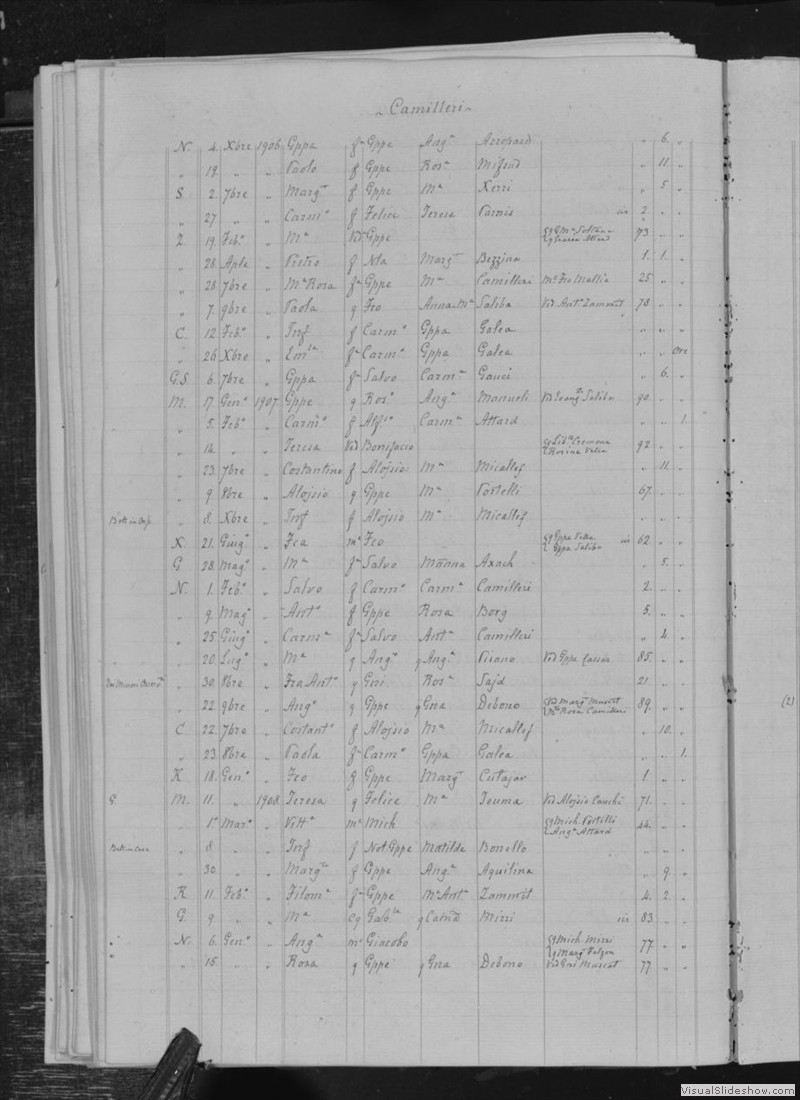 ~ Camilleri ~
N. 4. Xbre 1906. Gppa fª Gppe Angª Azzopard „ 6. „
„ 19. „ „ Paolo f Gppe Rosª Mifsud „ 11. „
S. 2. 7bre „ Margª f Gppe Mª Xerri „ 5. „
„ 27 „ „ Carmº f Felice Teresa Parnis 2. „ „
Z. 19. Febº „ Mª Ved Gppe 73 „ „
„ 28. Aple „ Pietro f Nla Margª Bezzina 1. 1. „
„ 28. 7bre „ Mª Rosa fª Gppe Mª Camilleri Mº Fro Mallia 25 „ „
„ 7. 9bre „ Paola q Fco Anna Mª Saliba Ved Antº Zammit 78 „ „
C. 12. Febº „ Inf f Carmº Gppa Galea „ „ „
„ 26 Xbre „ Emla fª Carmº Gppa Galea „ „ Ore
G.S. 6. 7bre „ Gppa fª Salvo Carmª Gauci „ 6. „
M. 17. Genº 1907. Gppe q Rosº Angª Manueli Saliba 90. „ „
„ 5. Febº „ Carmº f Alfº Carmª Attard „ „ 1.
„ 14. „ „ Teresa Ved Bonifacio Cremona 92 „ „
„ 23. 7bre „ Costantino f Aloisio Mª Micallef „ 11. „
„ 9. 8bre „ Aloisio q Gppe Mª Portelli 67. „ „
„ 8. Xbre „ Inf f Aloisio Mª Micallef „ „ „
X. 21. Giugº „ Fca mº Fco Gppa Saliba 62. „ „
G. 28. Magº „ Mª fª Salvo Marina Axach „ „ „
N. 1. Febº „ Salvo f Carmº Carmª Camilleri 2. „ „
„ 9. Magº „ Antº f Gppe Rosa Borg 5. „ „
„ 25 Giugº „ Carmª fª Salvo Antª Camilleri „ 4. „
„ 20. Lugº „ Mª q Angº q Angª Pisano Ved Gppe 85. „ „
„ 30. 8bre „ Fra Antº q Gni Rosª Sajd 21. „ „
„ 22 9bre „ Angº q Gppe q Gna Debono Ved Margª Muscat Rosa Camilleri 89. „ „ (2)
C 22. 7bre „ Costantº f Aloisio Mª Micallef „ 10. „
„ 23. 8bre „ Paola fª Carmº Gppa Galea „ „ 1.
K 18. Genº „ Fco f Gppe Margª Cutajar 1. „ „
G. M. 11. „ 1908. Teresa q Felice Mª Teuma Ved Aloisio Cauchi 71. „ „
„ 1º Marº „ Vittª mº Mich q Mich Portelli q Angª Attard 44. „ „
„ 8 „ „ Inf f Not Gppe Matilde Bonello „ „ „
„ 30. „ „ Margta f Gppe Angª Aquilina „ 9. „
R 11. Febº „ Filomª fª Gppe Mª Antª Zammit 4. 2. „
G. 9 „ „ Mª q Catna Mizzi 83. „ „
N. 6. Genº „ Angª mº Giacobo q Mich Mizzi q Margª 77. „ „
„ 15. „ „ Rosa q Gppe q Gna Debono Ved Gni Muscat 77. „ „
VisualSlideshow.com